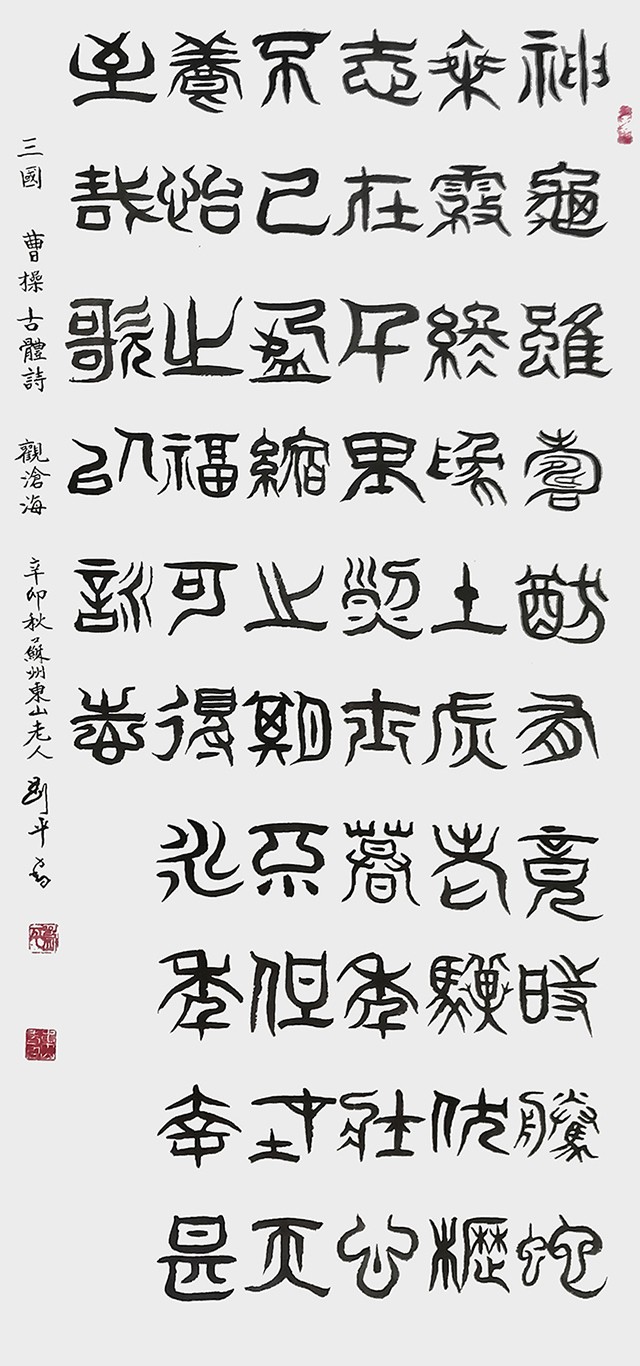 神龜雖壽猶有竟時騰蛇
乘霧終為土灰老驥伏櫪
志在千里烈士暮年壯心
不已盈縮之期不但在天
養怡之福可得永年幸甚
至哉歌以詠志
三國 曹操古體詩 觀滄海 辛卯秋蘇州東山老人劉平書